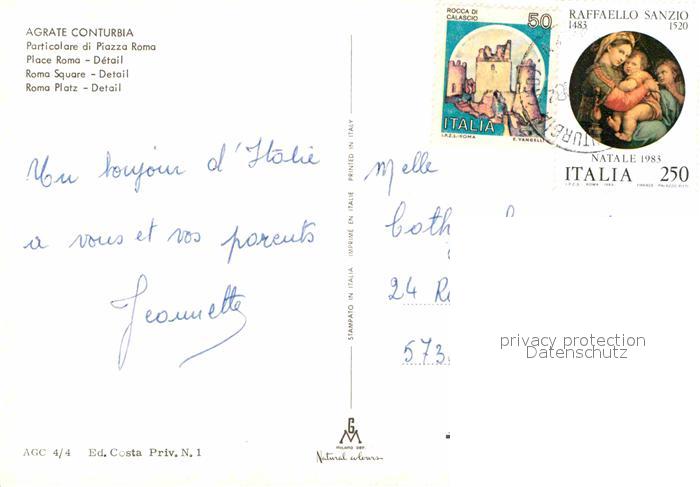 AGRATE CONTURBIA
Particolare di Piazza Roma
Place Roma - Détail
Roma Square - Detail
Roma Platz - Detail
Un bonjour d'Italie
a vous et vos parents
Jeannette
AGC 4/4 Ed. Costa Priv. N. 1
STAMPATO IN ITALIA IMPRIMÉ EN ITALIE PRINTED IN ITALY
GM
MILANO
Natural colours
ROCCA DI
CALASCIO
50
ITALIA
I.P.Z.S.-ROMA E. VANGELLI
RAFFAELLO SANZIO
1483 1520
NATALE 1983
ITALIA 250
I.P.Z.S. ROMA 1983 FIRENZE PALAZZO PITTI
Melle
Cath
24 R
573
privacy protection
Datenschutz